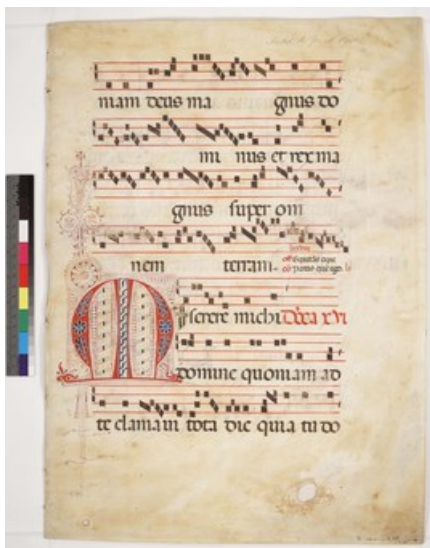 niam deus ma gnus do
mi nus et rex ma
gnus super om
nem terram.
Miserere michi
domine quoniam ad
te clamavi tota die quia tu do